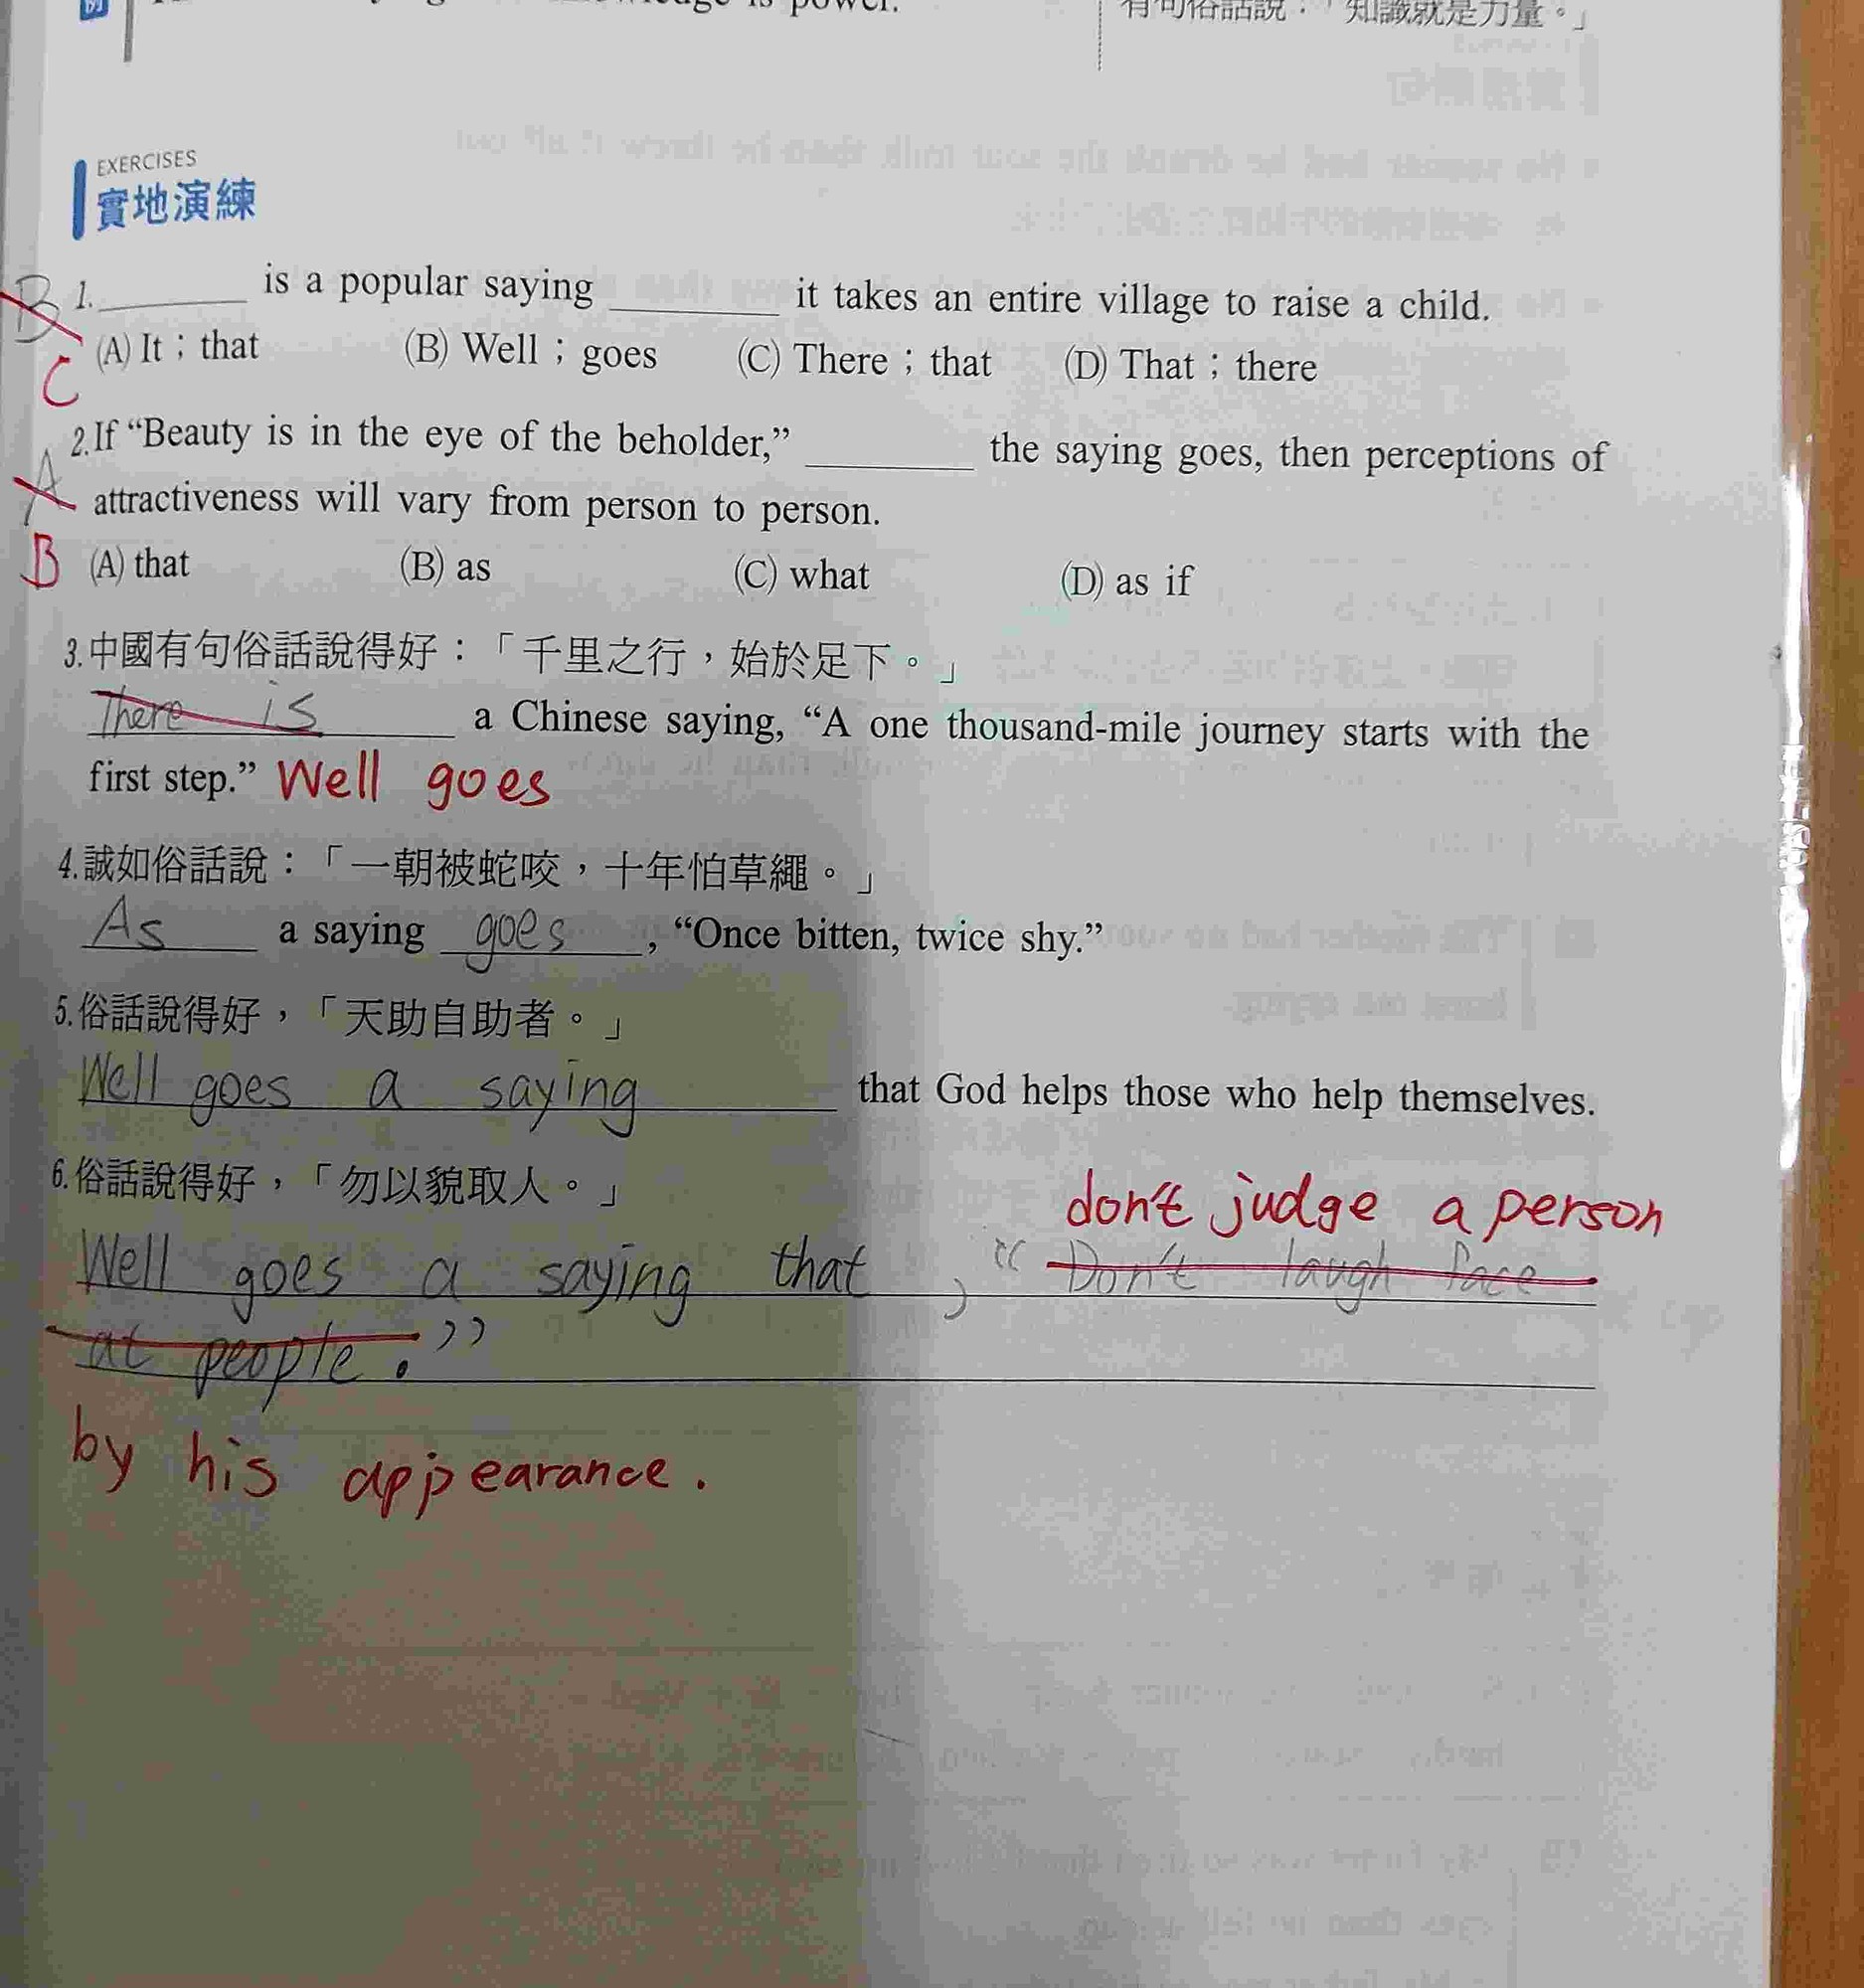 例
is power.
有句俗話說：「知識就是力量。」
EXERCISES
實地演練
B 1.________ is a popular saying ________ it takes an entire village to raise a child.
C (A) It；that (B) Well；goes (C) There；that (D) That；there
2.If “Beauty is in the eye of the beholder,” ________ the saying goes, then perceptions of
A attractiveness will vary from person to person.
B (A) that (B) as (C) what (D) as if
3.中國有句俗話說得好：「千里之行，始於足下。」
There is a Chinese saying, “A one thousand-mile journey starts with the
first step.” Well goes
4.誠如俗話說：「一朝被蛇咬，十年怕草繩。」
As a saying goes, “Once bitten, twice shy.”
5.俗話說得好，「天助自助者。」
Well goes a saying that God helps those who help themselves.
6.俗話說得好，「勿以貌取人。」
don't judge a person
Well goes a saying that , “Don't laugh face
at people.”
by his appearance.